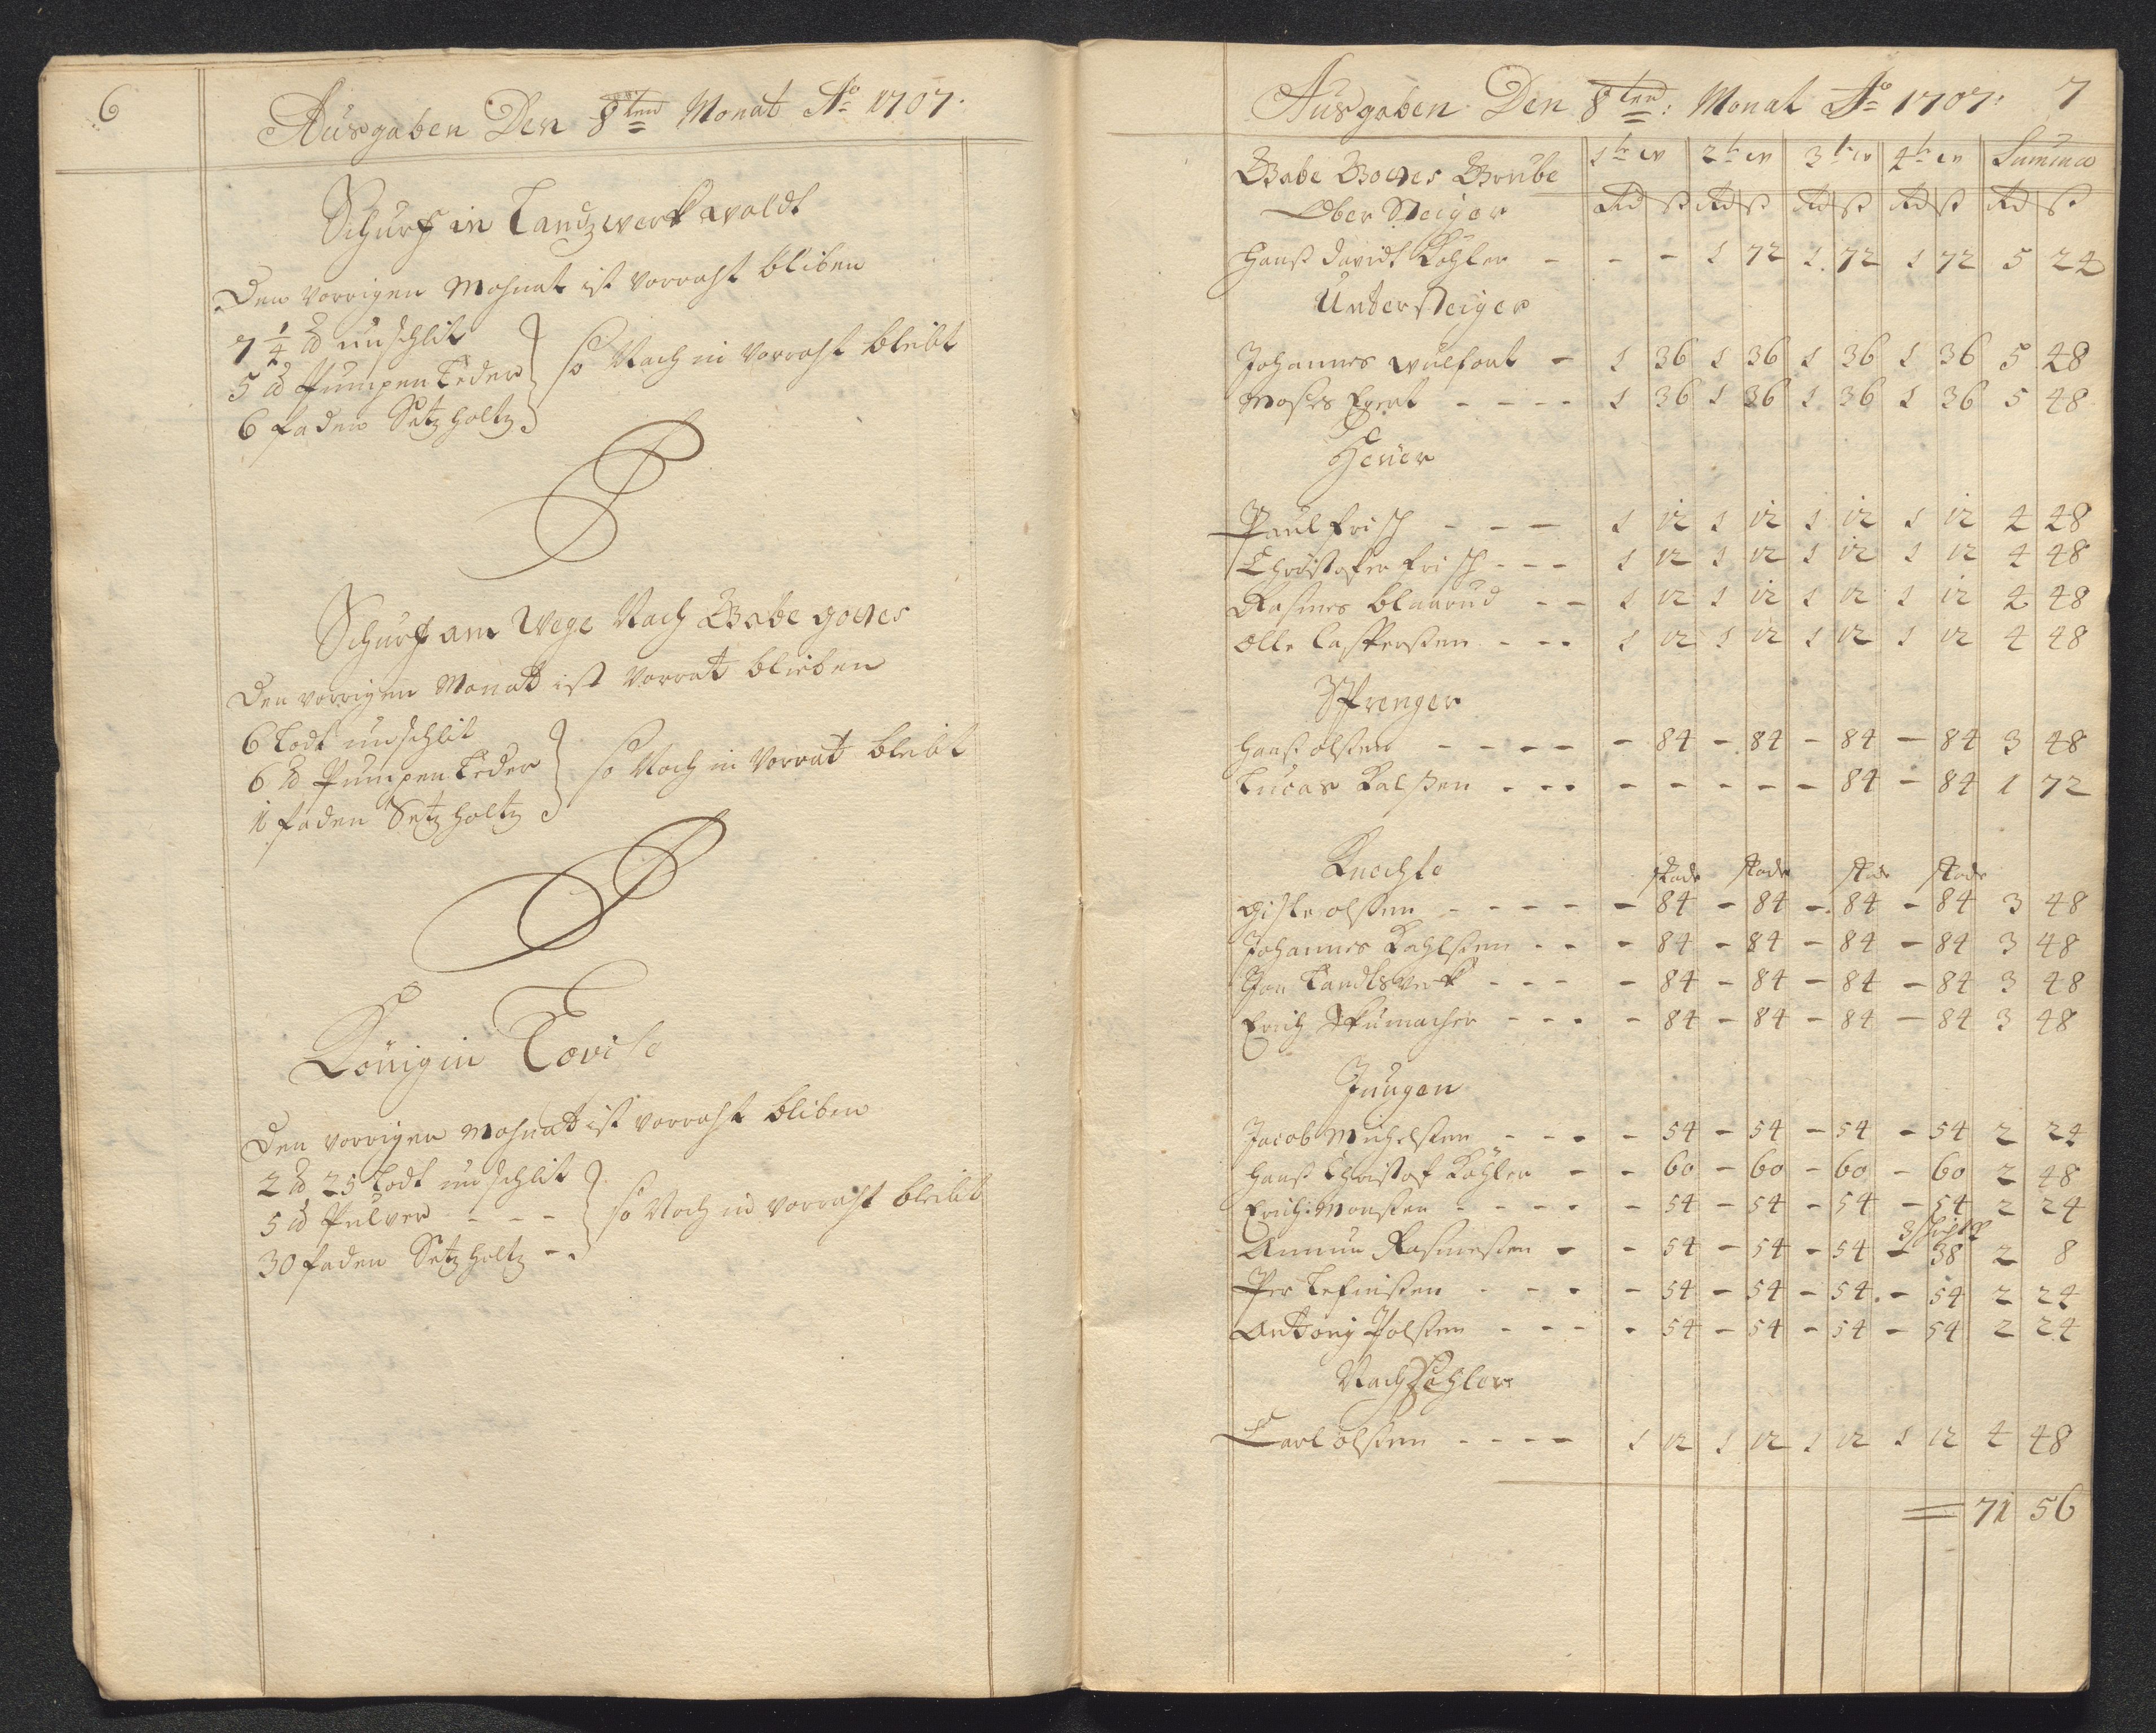 6
Ausgaben Den 8ten Monat Ao 1707.
Schurf in Landzwerk waldt
Den vorrigen Mohnat ist vorraht bliben
7 1/4 ℔ unschlit
5 ℔ Pumpen Leder
6 faden Setzholtz
so Noch in vorraht bleibt
Schurf am Wege Nach Gabe gottes
Den vorrigen Monat ist Vorrat blieben
6 Lodt unschlit
6 ℔ Pumpen Leder
11 faden Setzholtz
so Noch in Vorrat bleibt
Königin Lovise
Den vorrigen Mohnat ist vorraht bliben
2 ℔ 25 Lodt unschlit
5 ℔ Pulver - - -
30 faden Setzholtz -
so Noch in vorraht bleibt
Ausgaben Den 8ten: Monat Ao 1707: 7
Gabe Gottes Grube 1te w 2te w 3te w 4te w Summa
Ober Steiger Rd ß Rd ß Rd ß Rd ß Rd ß
Hanß Davidt Köhler - - - 1 72 1 72 1 72 5 24
Untersteiger
Johannes - 1 36 1 36 1 36 1 36 5 48
Moses - - - - 1 36 1 36 1 36 1 36 5 48
Heüer
Paul Frisch - - - 1 12 1 12 1 12 1 12 4 48
Christoffer Frisch - - - 1 12 1 12 1 12 1 12 4 48
Rasmes Blaarud - - 1 12 1 12 1 12 1 12 4 48
Olle Casperßen - - - 1 12 1 12 1 12 1 12 4 48
Sprenger
Hanß Olßen - - - - - 84 - 84 - 84 - 84 3 48
Lucas Kalßen - - - - - - - - - 84 - 84 1 72
Knechte
Giste Olßen - - - - - 84 - 84 - 84 - 84 3 48
Johannes Kahlßen - - - 84 - 84 - 84 - 84 3 48
Jon Landtswerk - - - - 84 - 84 - 84 - 84 3 48
Erich Skumacher - - - - 84 - 84 - 84 - 84 3 48
Jungen
Jacob Michelßen - - - - 54 - 54 - 54 - 54 2 24
Hanß Christof Köhler - - 60 - 60 - 60 - 60 2 48
Erich Monßen - - - - - 54 - 54 - 54 - 54 2 24
3 schicht
Rasmeßen - - 54 - 54 - 54 - 38 2 8
Per - - - - 54 - 54 - 54 - 54 2 24
Anthonj Polßen - - - - 54 - 54 - 54 - 54 2 24
Nachzähler
Carl Olßen - - - - 1 12 1 12 1 12 1 12 4 48
= 71 56